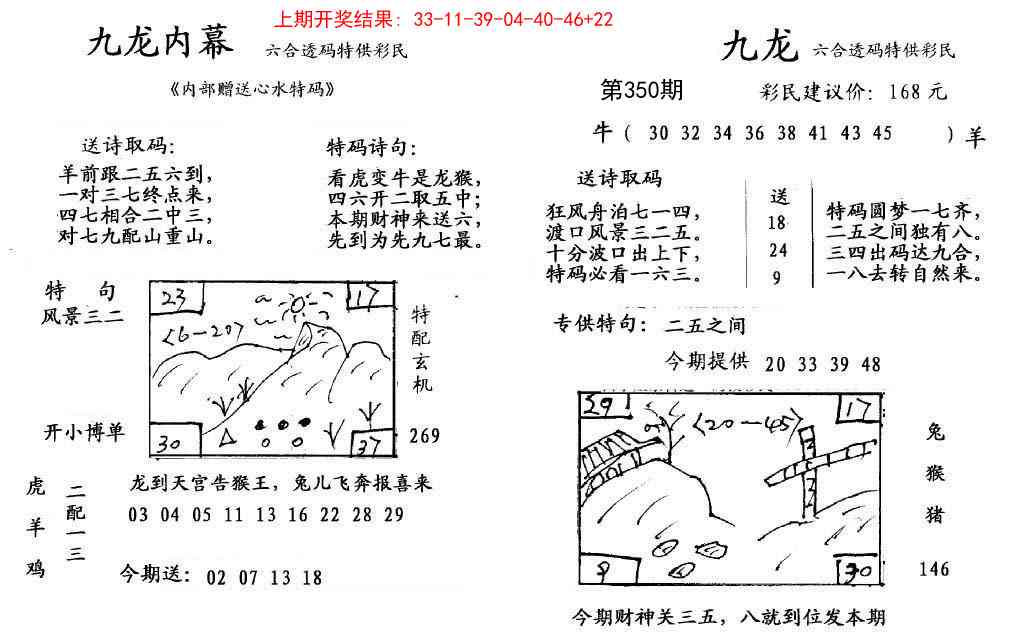 上期开奖结果：33-11-39-04-40-46+22
九龙内幕 六合透码特供彩民
《内部赠送心水特码》
送诗取码：
羊前跟二五六到，
一对三七终点来，
四七相合二中三，
对七九配山重山。
特码诗句：
看虎变牛是龙猴，
四六开二取五中；
本期财神来送六，
先到为先九七最。
特 句
风景三二
开小博单
23
17
<6-20>
30
37
特配玄机
269
虎羊鸡
二配一三
龙到天宫告猴王，兔儿飞奔报喜来
03 04 05 11 13 16 22 28 29
今期送：02 07 13 18
九龙 六合透码特供彩民
第350期 彩民建议价：168元
牛（ 30 32 34 36 38 41 43 45 ）羊
送诗取码
狂风舟泊七一四，
渡口风景三二五。
十分波口出上下，
特码必看一六三。
送
18
24
9
特码圆梦一七齐，
二五之间独有八。
三四出码达九合，
一八去转自然来。
专供特句：二五之间
今期提供 20 33 39 48
29
17
<20-45>
9
30
兔猴猪
146
今期财神关三五，八就到位发本期